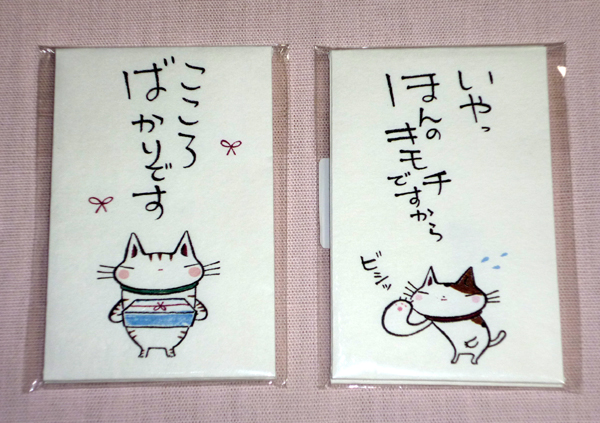 こころ
ばかりです
いやっ
ほんの
キモチ
ですから
ビシッ